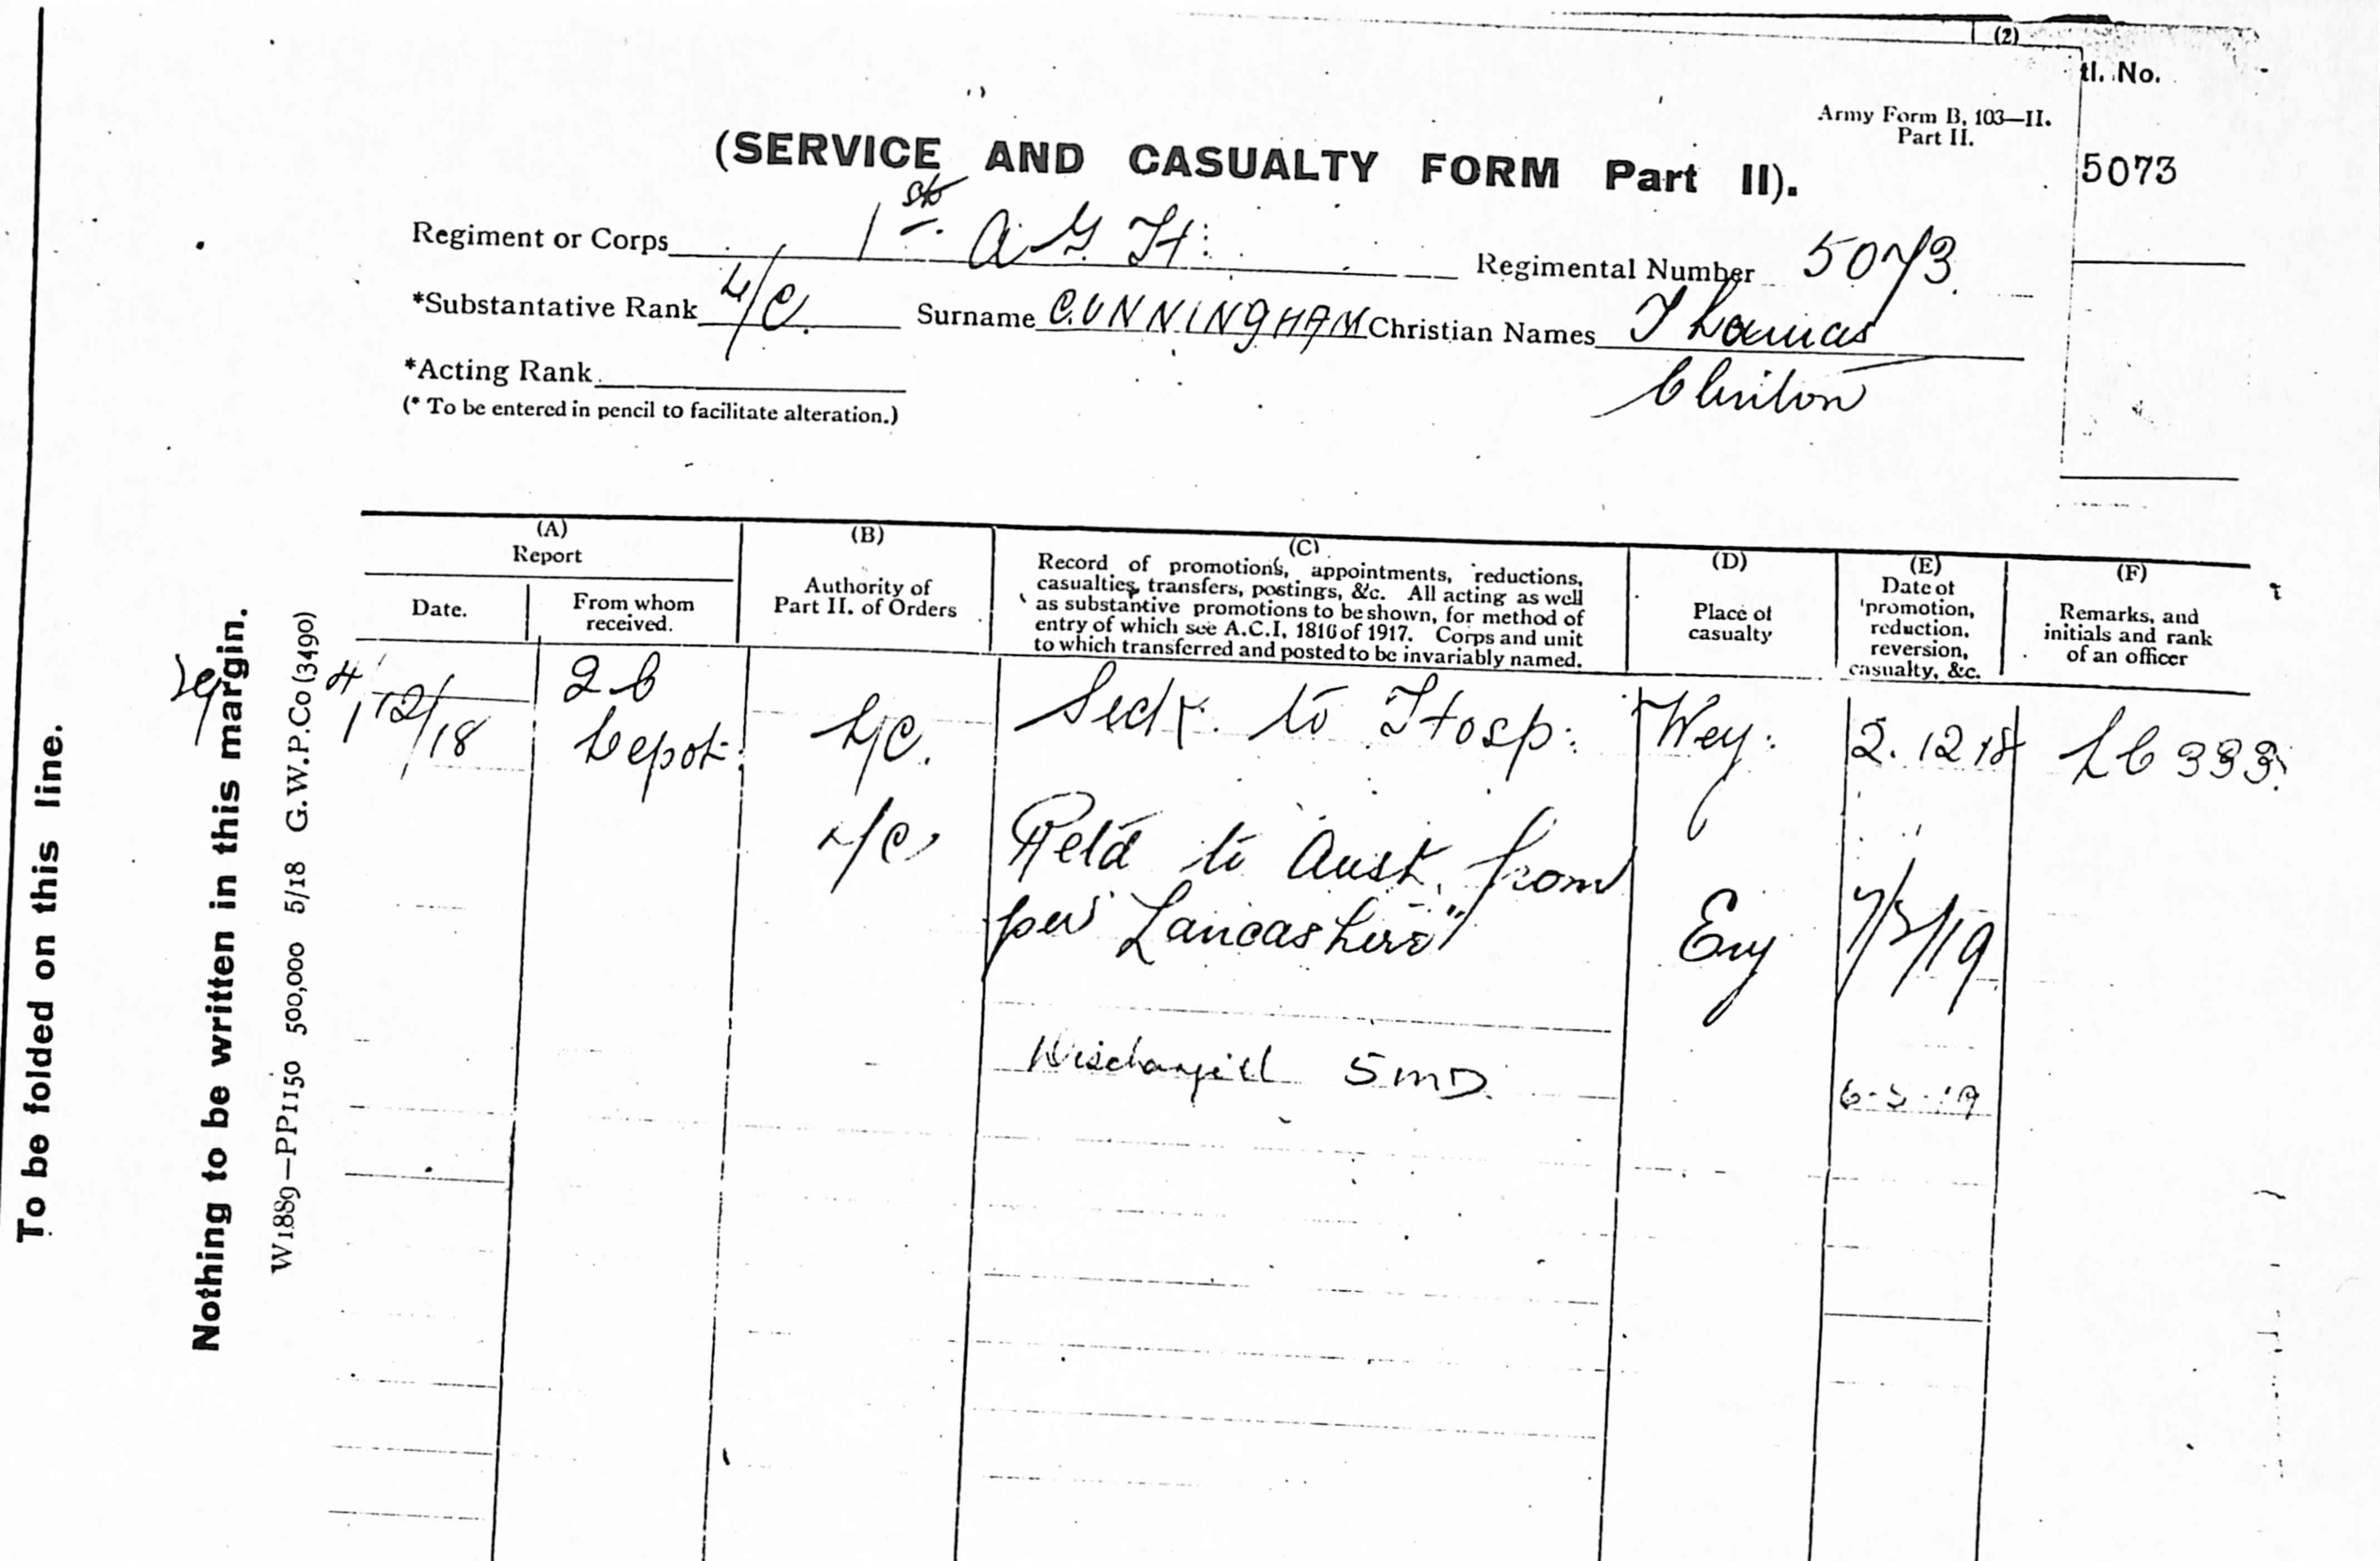 (2)
tl. No.
Army Form B, 103—II.
Part II.
(SERVICE AND CASUALTY FORM Part II).
5073
Regiment or Corps 1st A G H: Regimental Number 5073.
*Substantative Rank L/C. Surname CUNNINGHAM Christian Names Thomas
Clinton
*Acting Rank
(* To be entered in pencil to facilitate alteration.)
(A)
Report
Date.
From whom
received.
(B)
Authority of
Part II. of Orders
(C)
Record of promotions, appointments, reductions,
casualties, transfers, postings, &c. All acting as well
as substantive promotions to be shown, for method of
entry of which see A.C.I, 1816 of 1917. Corps and unit
to which transferred and posted to be invariably named.
(D)
Place of
casualty
(E)
Date of
promotion,
reduction,
reversion,
casualty, &c.
(F)
Remarks, and
initials and rank
of an officer
4/12/18 2 b Depot: L/C. Sick to Hosp: Wey: 2.12.18
L/C, Retd to Aust. from
per "Lancashire" Eng
Discharged 5 MD.
To be folded on this line.
Nothing to be written in this margin.
W1889—PP1150 500,000 5/18 G.W.P.Co (3490)